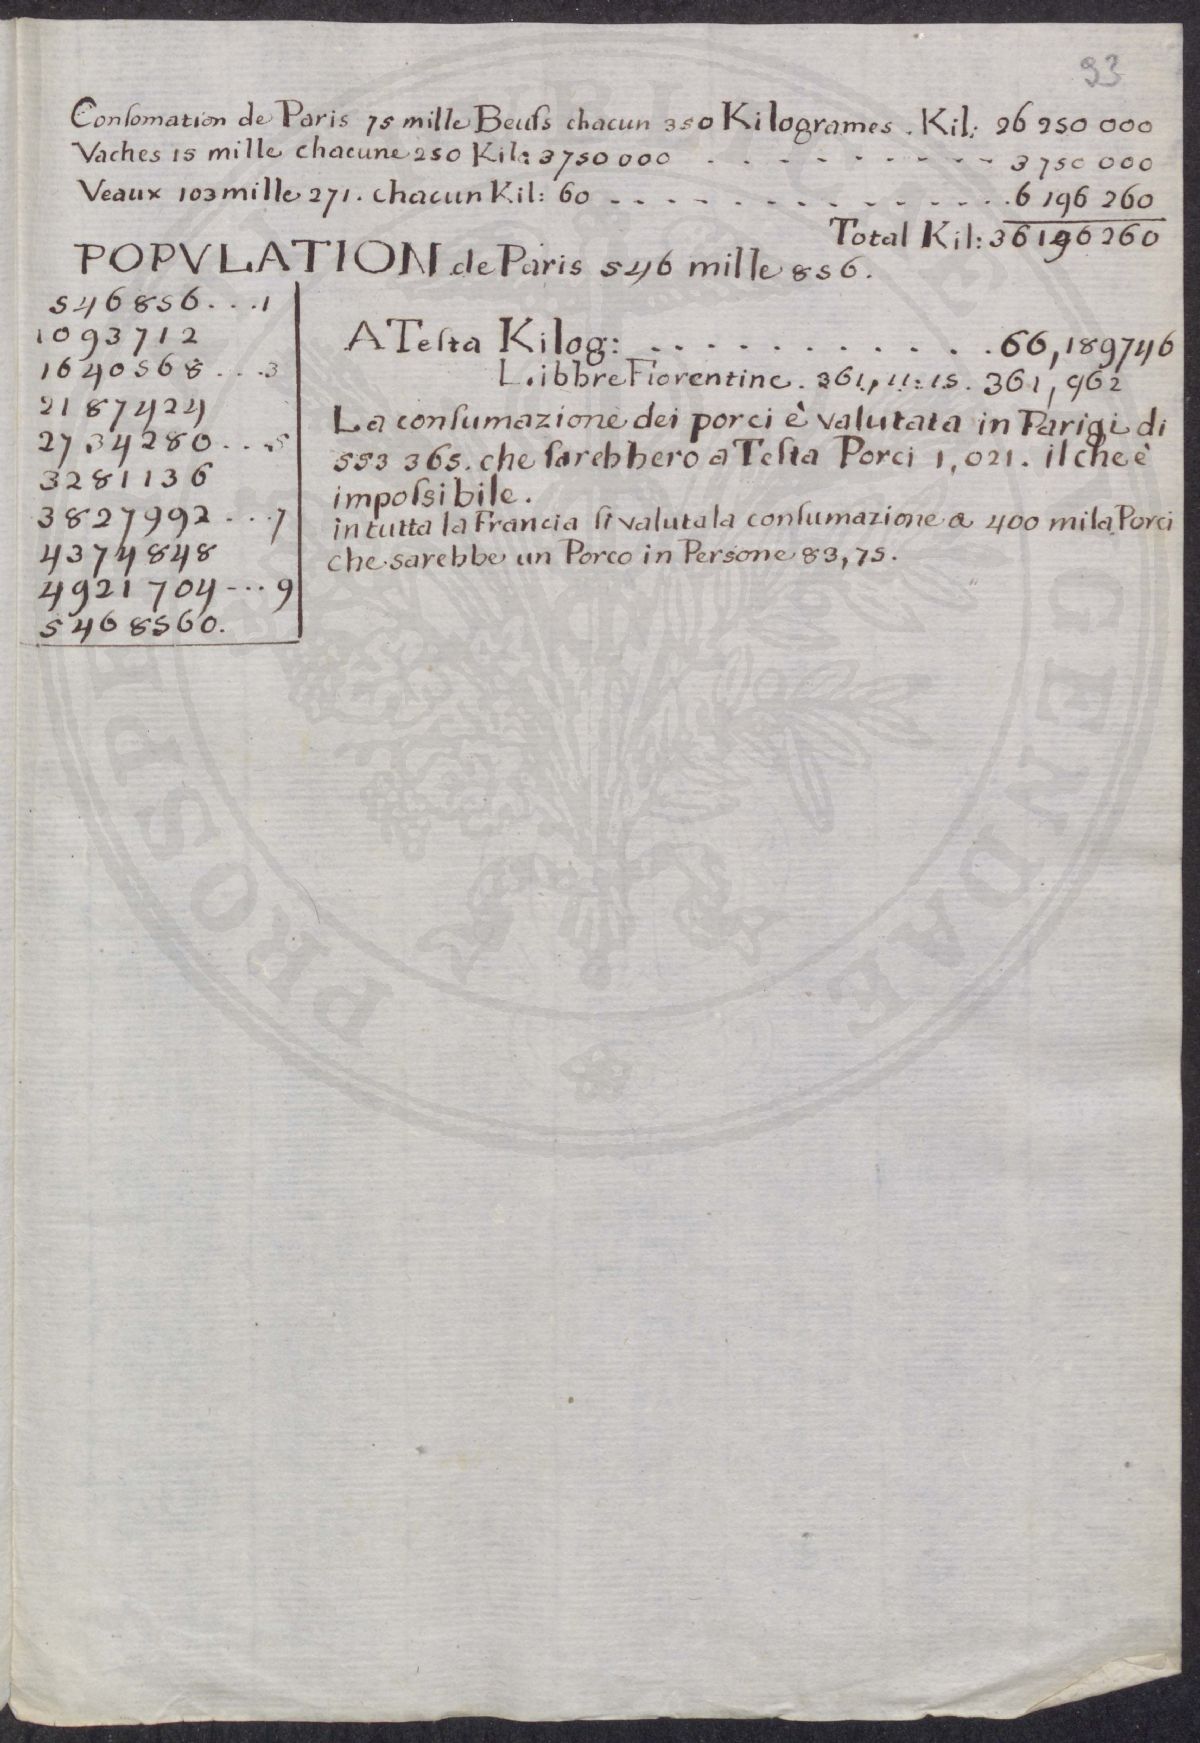 93
Consomation de Paris 75 mille Beufs chacun 350 Kilogrames . Kil: 26 250 000
Vaches 15 mille chacune 250 Kil: 3750 000 - - - - - - - - - - 3 750 000
Veaux 103 mille 271. chacun Kil: 60 - - - - - - - - - - - - - - 6 196 260
Total Kil: 36196260
POPVLATION de Paris 546 mille 856.
546856. . . 1
1093712
1640568 . . . 3
2187424
2734280 . . . 5
3281136
3827992 . . . 7
4374848
4921704 - . . 9
5468560.
A Testa Kilog: . . . . . . . . . . . . . 66,189746
Libbre Fiorentine. 361,, 11: 15. 361, 962
La consumazione dei porci è valutata in Parigi di
553 365. che sarebbero a Testa Porci 1,021. il che è
impossibile.
in tutta la Francia si valuta la consumazione a 400 mila Porci
che sarebbe un Porco in Persone 83,75.
PROSPI
ICIENDAE